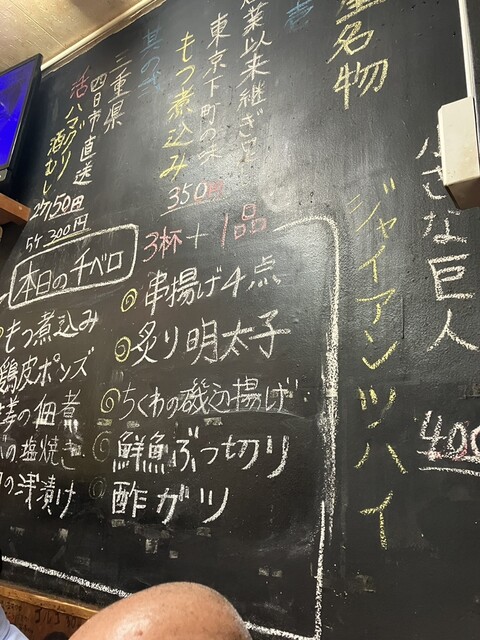 名物
小さな巨人
ジャイアンツハイ
400
壱
業以来継ぎ足
東京下町の味
もつ煮込み
350円
其の弐
三重県
四日市直送
活ハマグリ酒むし
2ヶ150円
5ヶ300円
3杯+1品
本日のチベロ
串揚げ4点
炙り明太子
ちくわの磯辺揚げ
鮮魚ぶっ切り
酢ガツ
もつ煮込み
鶏皮ポンズ
の佃煮
の塩焼き
の浅漬け